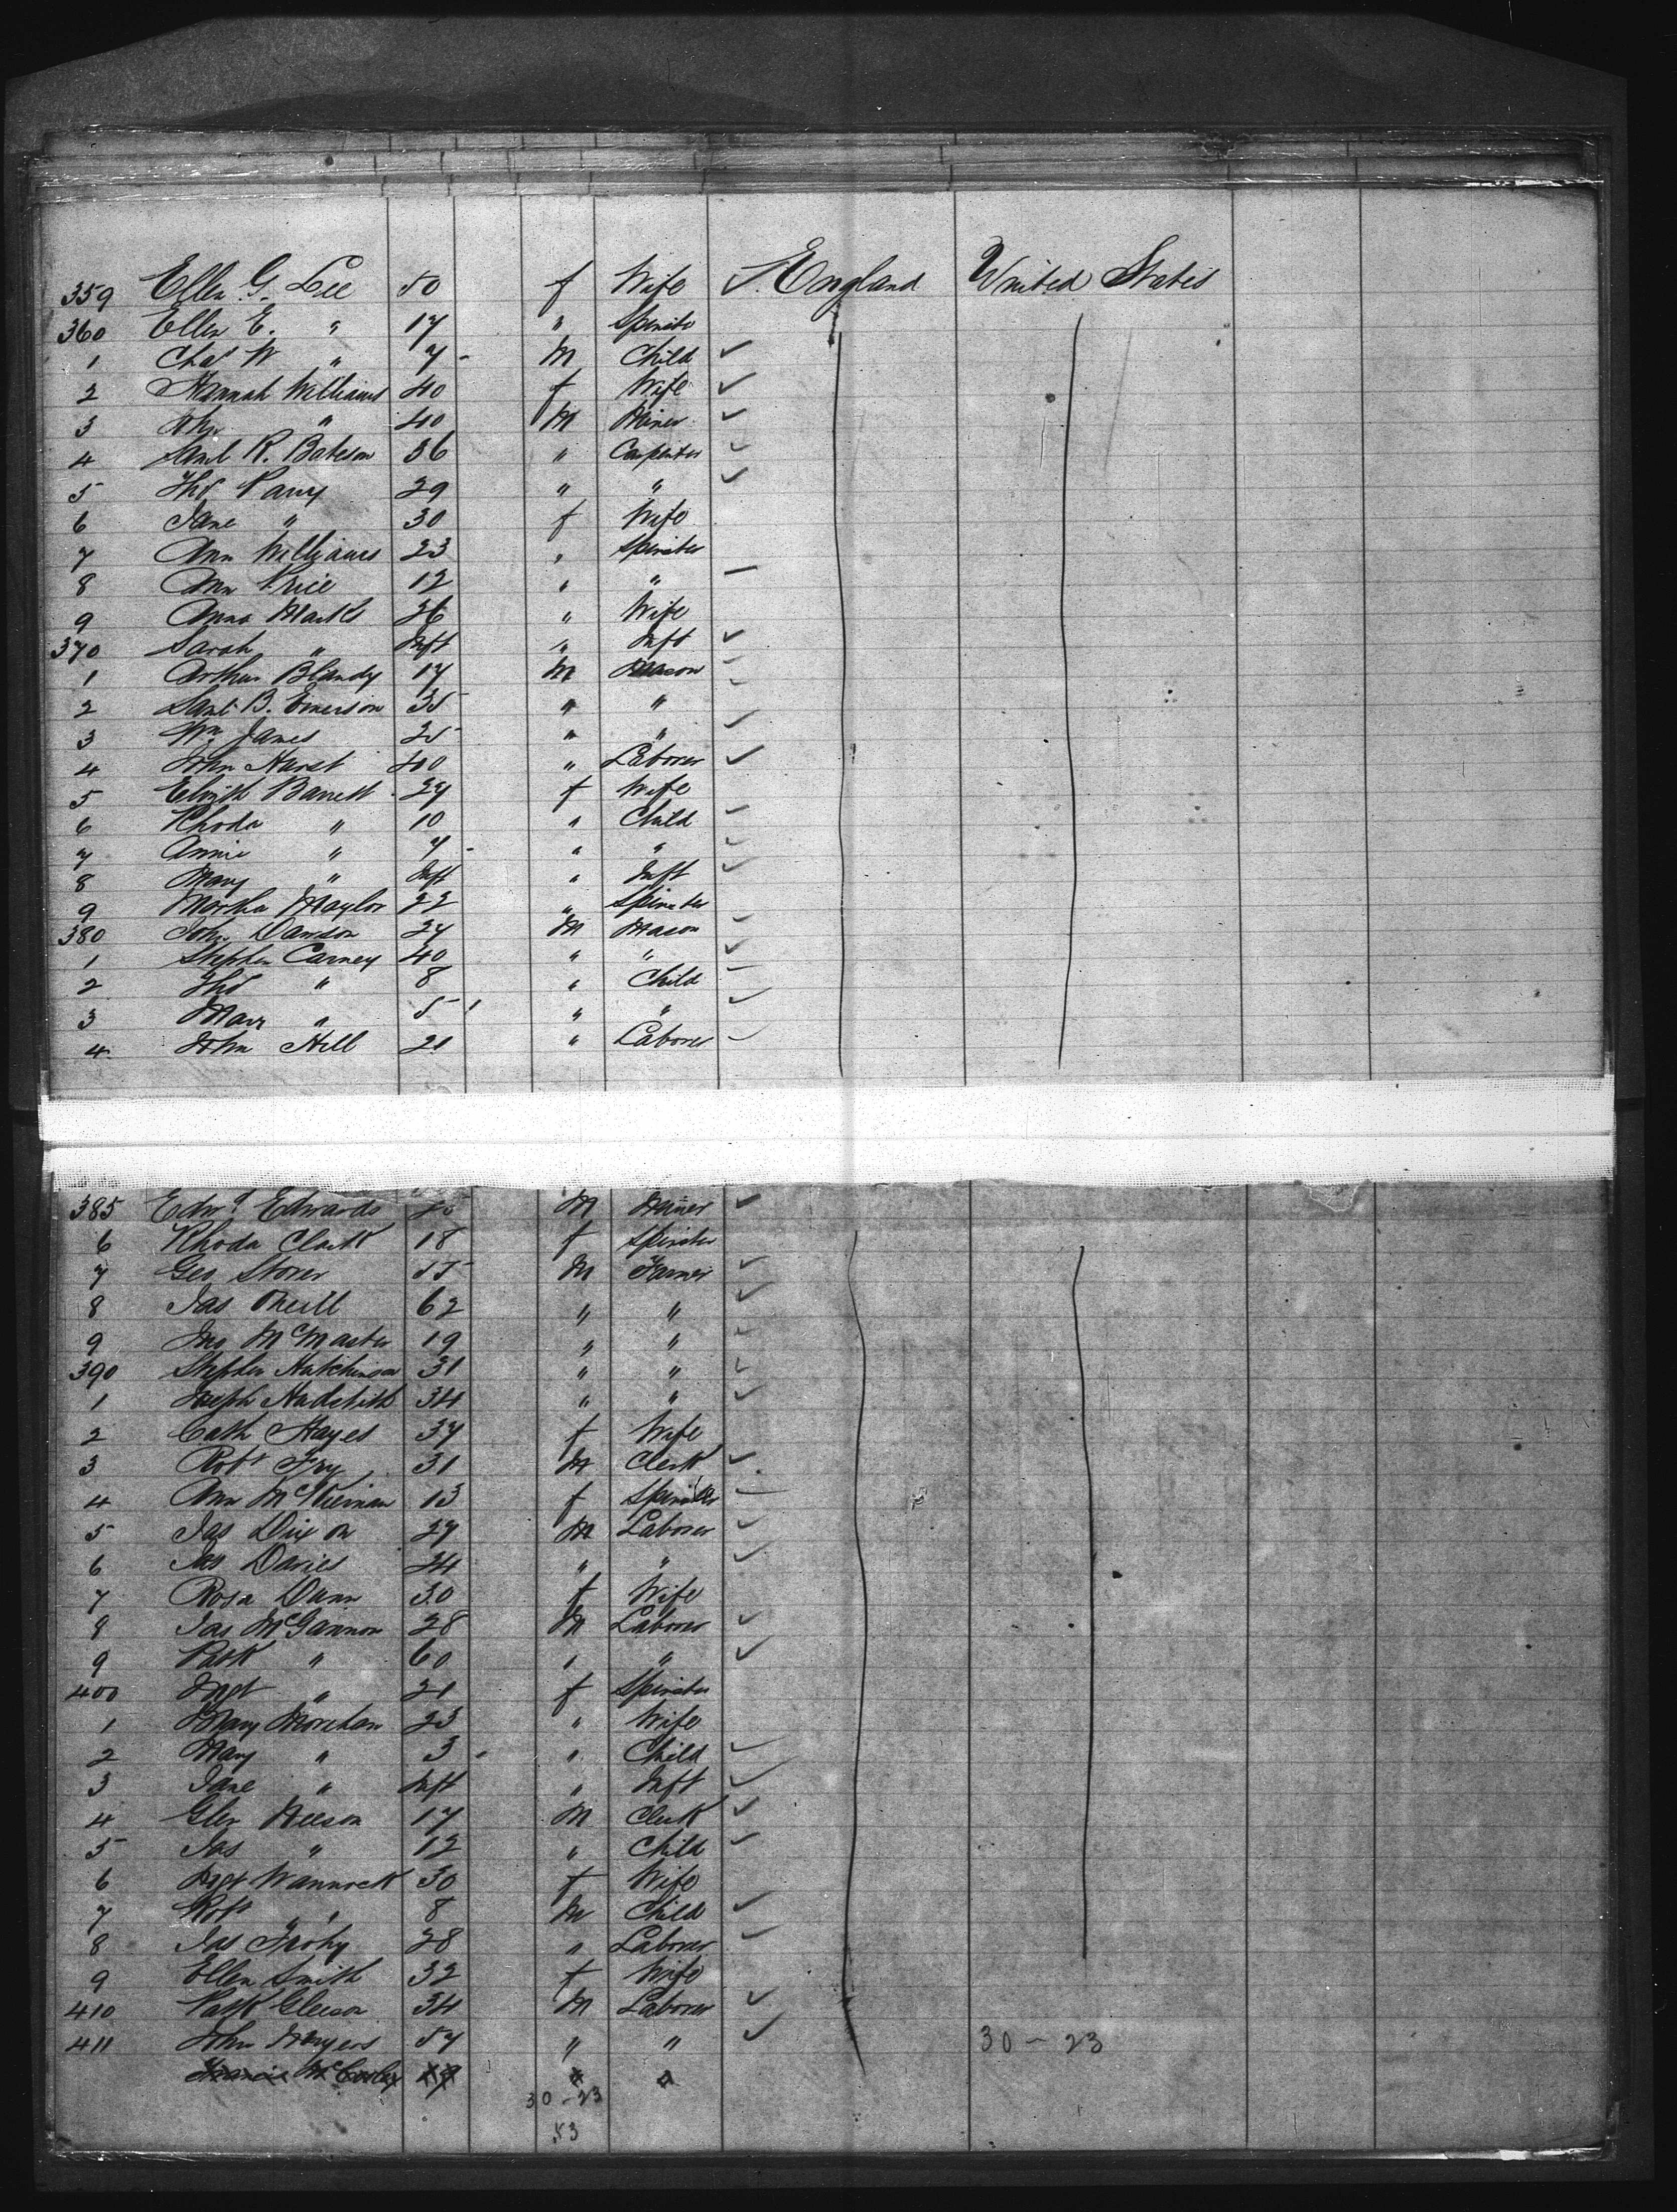 359 Ellen G. Lee 50 f Wife ✓ England United States
360 Ellen E. " 17 " Spinster
1 Chas W " 7 - M Child ✓
2 Hannah Williams 40 f Wife ✓
3 " 40 M Miner ✓
4 Saml R. Bateson 36 " Carpenter ✓
5 Thos Parry 29 " " ✓
6 Jane " 30 f Wife
7 Ann Williams 23 " Spinster
8 Ann Price 12 " " -
9 Anna Marks 36 " Wife
370 Sarah " Inft " Inft ✓
1 Arthur Blandy 17 M Mason -
2 Saml B. Emerson 35 " " -
3 Wm Janes 25 " " ✓
4 John Hurst 40 " Laborer ✓
5 Elizth Barrett 27 f Wife
6 Rhoda " 10 " Child ✓
7 Annie " 7 - " " ✓
8 Mary " Inft " Inft ✓
9 Martha Naylor 22 " Spinster
380 John Dawson 27 M Mason ✓
1 Stephen Carney 40 " " ✓
2 Thos " 8 " Child -
3 " 5 " " ✓
4 John Hill 21 " Laborer -
385 Edwd Edwards 25 M Miner ✓
6 Rhoda Clark 18 f Spinster
7 Geo Storer 55 M Farmer ✓
8 Jas Oneill 62 " " ✓
9 Jno McMaster 19 " " ✓
390 Stephen Hutchinson 31 " " ✓
1 Joseph 34 " " ✓
2 Cath Hayes 37 f Wife
3 Robt Fry 31 M Clerk ✓
4 Ann McKiernan 13 f Spinster -
5 Jas Dixon 27 M Laborer ✓
6 Jas Davies 24 " " ✓
7 Rosa Dunn 30 f Wife
8 Jas McGannon 28 M Laborer ✓
9 Patk " 60 " " ✓
400 Mgt " 21 f Spinster
1 Mary 23 " Wife
2 Mary " 3 - " Child ✓
3 Jane " Inft " Inft ✓
4 17 M Clerk ✓
5 Jas " 12 " Child ✓
6 Mgt 30 f Wife
7 Robt " 8 M Child ✓
8 Jas 28 " Laborer ✓
9 Ellen Smith 32 f Wife
410 Patk Gleeson 34 M Laborer ✓
411 John Meyers 57 " " ✓ 30 - 23
30 - 23
53